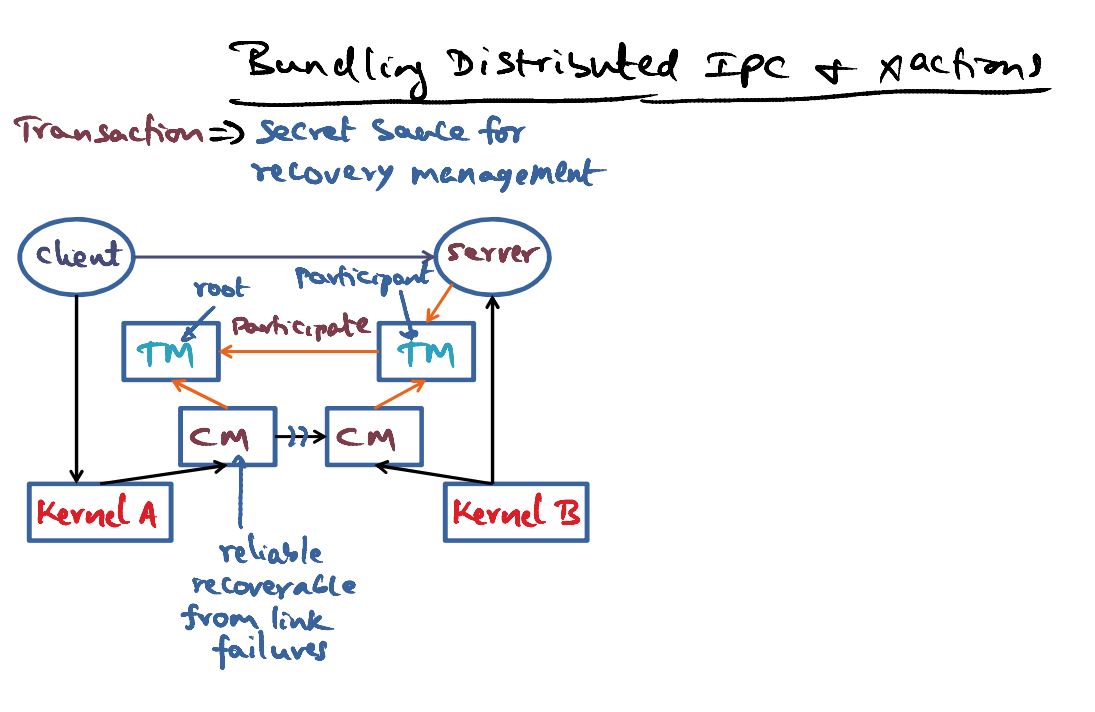 Bundling Distributed IPC & xactions
Transaction => secret sauce for
recovery management
client
server
root
participant
participate
TM
TM
CM
CM
Kernel A
Kernel B
reliable
recoverable
from link
failures